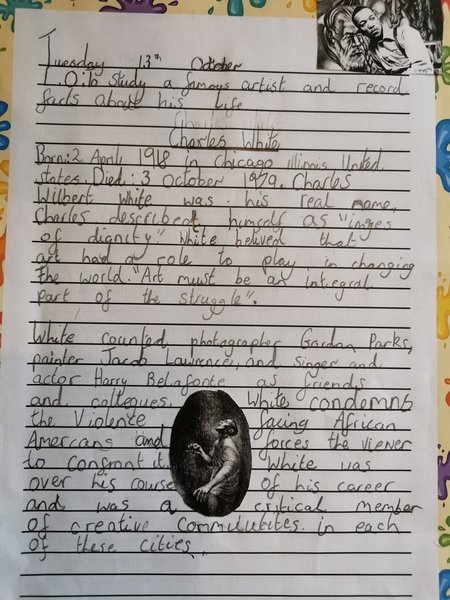 Tuesday 13th October
L.O: to study a famous artist and record
facts about his life
Charles White
Born: 2 April, 1918 in Chicago Illinois United
States Died: 3 October 1979. Charles
Wilbert White was his real name,
Charles described himself as "imges
of dignity." White belived that
art had a role to play in changing
the world. "Art must be an integral
part of the struggle".
White counted photographer Gordon Parks,
painter Jacob Lawrence, and singer and
actor Harry Belafonte as friends
and collegues. White condemns
the Violente facing African
Amercans and forces the viewer
to confront it. White was
over his course of his career
and was a critical member
of creative Commulutites. in each
of these cities.